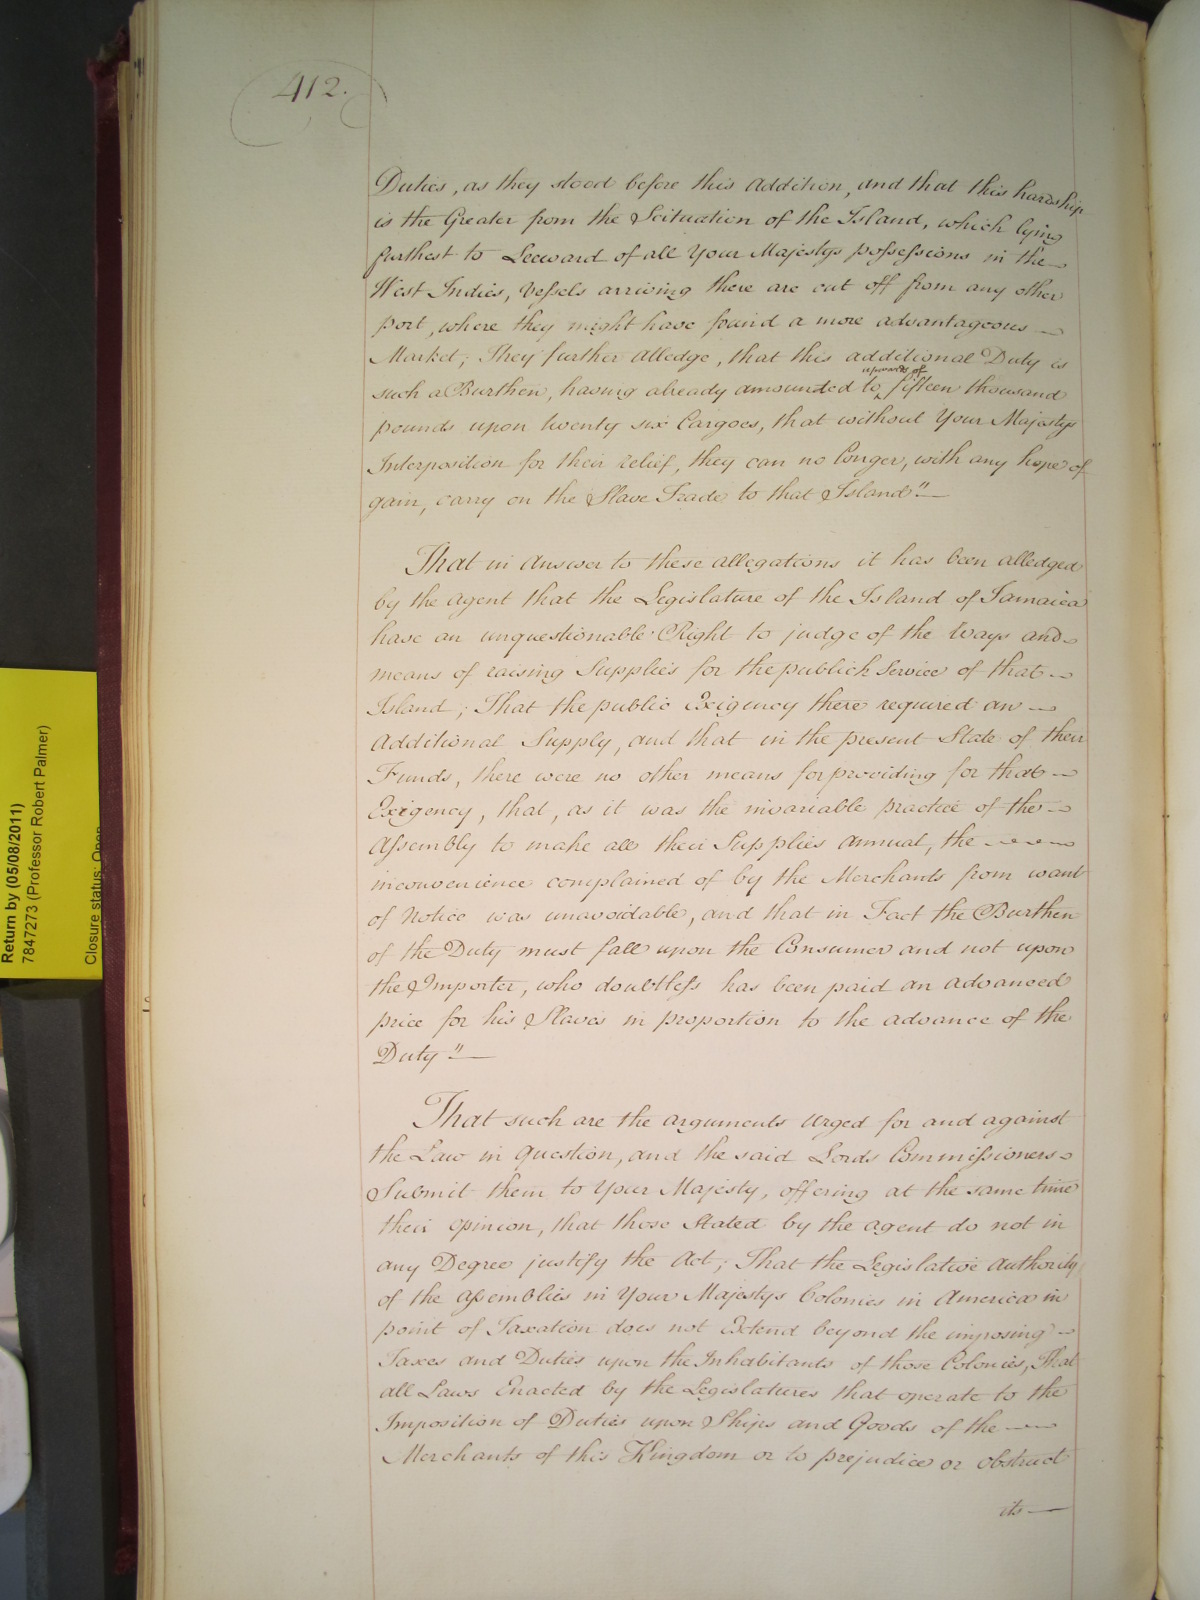 412.
Duties, as they stood before this Addition, and that this hardship
is the Greater from the Scituation of the Island, which lying
furthest to Leeward of all Your Majestys possessions in the
West Indies, Vessels arriving there are cut off from any other
port, where they might have found a more advantageous
Market; They further Alledge, that this additional Duty is
upwards of
such a Burthen, having already amounted to fifteen thousand
pounds upon twenty six Cargoes, that without Your Majestys
Interposition for their relief, they can no longer, with any hope of
gain, carry on the Slave Trade to that Island"
That in Answer to these allegations it has been alledged
by the Agent that the Legislature of the Island of Jamaica
have an unquestionable Right to judge of the Ways and
means of raising Supplies for the publick Service of that
Island; That the public Exigency there required an
Additional Supply, and that in the present State of their
Funds, there were no other means for providing for that
Exigency, that, as it was the invariable practice of the
Assembly to make all their Supplies annual, the
inconvenience complained of by the Merchants from want
of Notice was unavoidable, and that in Fact the Burthen
of the Duty must fall upon the Consumer and not upon
the Importer, who doubtless has been paid an advanced
price for his Slaves in proportion to the advance of the
Duty"
That such are the arguments Urged for and against
the Law in Question, and the said Lords Commissioners
Submit them to Your Majesty, offering at the same time
their opinion, that those Stated by the Agent do not in
any Degree justify the Act; That the Legislative Authority
of the Assemblies in Your Majestys Colonies in America in
point of Taxation does not Extend beyond the imposing
Taxes and Duties upon the Inhabitants of those Colonies, That
all Laws Enacted by the Legislatures that operate to the
Imposition of Duties upon Ships and Goods of the
Merchants of this Kingdom or to prejudice or obstruct
its
Return by (05/08/2011)
7847273 (Professor Robert Palmer)
Closure status: Open